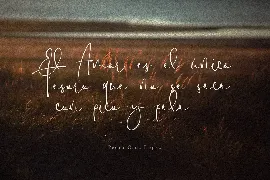 El Amor es el único
tesoro que no se saca
con pico y pala.